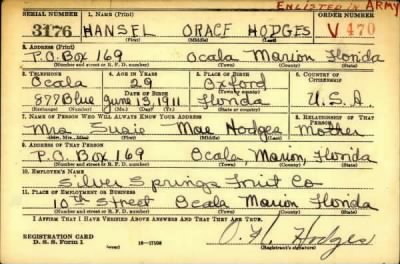 ENLISTED IN ARMY
SERIAL NUMBER 1. NAME (Print) ORDER NUMBER
3176 HANSEL ORACE HODGES V 470
(First) (Middle) (Last)
2. ADDRESS (Print)
P.O. Box 169 Ocala Marion Florida
(Number and street or R. F. D. number) (Town) (County) (State)
3. TELEPHONE 4. AGE IN YEARS 5. PLACE OF BIRTH 6. COUNTRY OF CITIZENSHIP
Ocala 29 Oxford
DATE OF BIRTH (Town or county)
877 Blue June 13 1911 Florida U.S.A.
(Exchange) (Number) (Mo.) (Day) (Yr.) (State or country)
7. NAME OF PERSON WHO WILL ALWAYS KNOW YOUR ADDRESS 8. RELATIONSHIP OF THAT PERSON
Mrs. Susie Mae Hodges Mother
(Mr., Mrs., Miss) (First) (Middle) (Last)
9. ADDRESS OF THAT PERSON
P.O. Box 169 Ocala, Marion, Florida
(Number and street or R. F. D. number) (Town) (County) (State)
10. EMPLOYER'S NAME
Silver Springs Fruit Co
11. PLACE OF EMPLOYMENT OR BUSINESS
10th Street Ocala Marion Florida
(Number and street or R. F. D. number) (Town) (County) (State)
I AFFIRM THAT I HAVE VERIFIED ABOVE ANSWERS AND THAT THEY ARE TRUE.
REGISTRATION CARD
D. S. S. Form 1 16-17105 O. H. Hodges
(Registrant's signature)